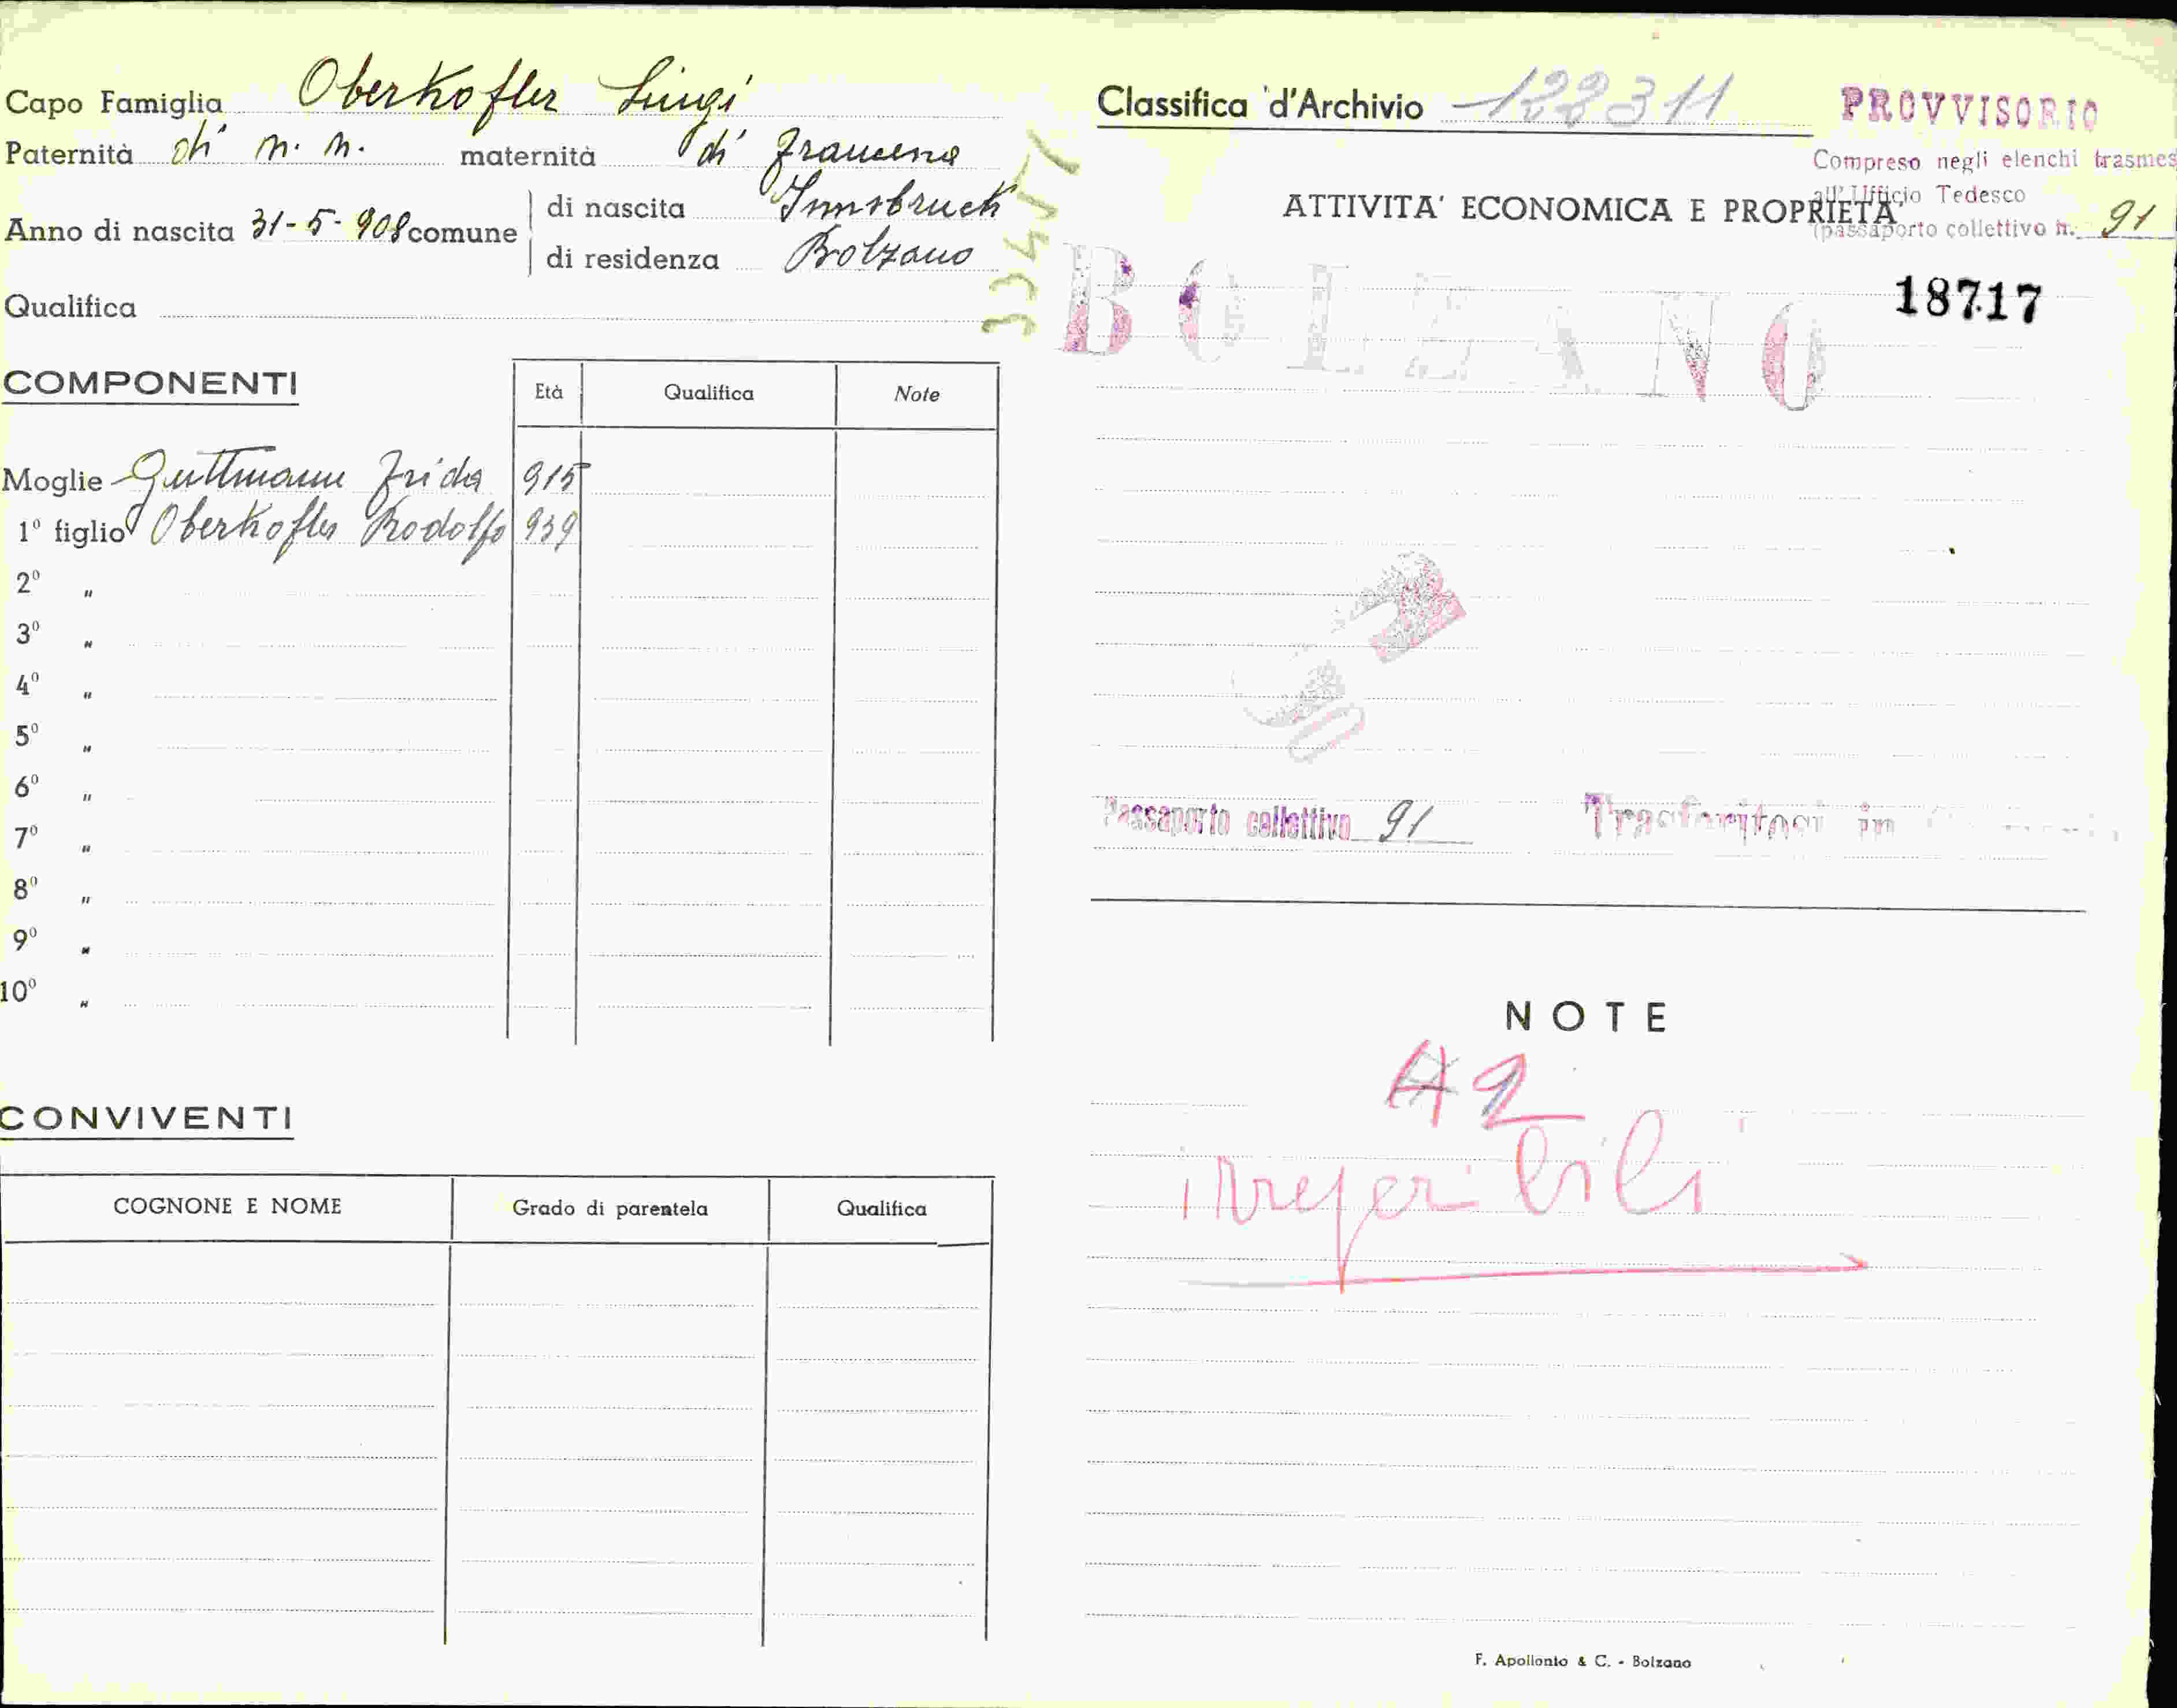 Capo Famiglia Oberkofler Luigi
Paternità di n. n. maternità di
Anno di nascita 31-5-908 comune
di nascita Innsbruck
di residenza Bolzano
Qualifica
COMPONENTI
Età Qualifica Note
Moglie Guttmann Frida 915
1º figlio Oberkofler Rodolfo 939
2º "
3º "
4º "
5º "
6º "
7º "
8º "
9º "
10º "
CONVIVENTI
COGNONE E NOME Grado di parentela Qualifica
Classifica d'Archivio 122311
PROVVISORIO
Compreso negli elenchi trasmes
all'Ufficio Tedesco
(passaporto collettivo n. 91
ATTIVITA' ECONOMICA E PROPRIETA'
18717
BOLZANO
Passaporto collettivo 91 Trasferitosi in
NOTE
irreperibili
F. Apollonio & C. - Bolzano